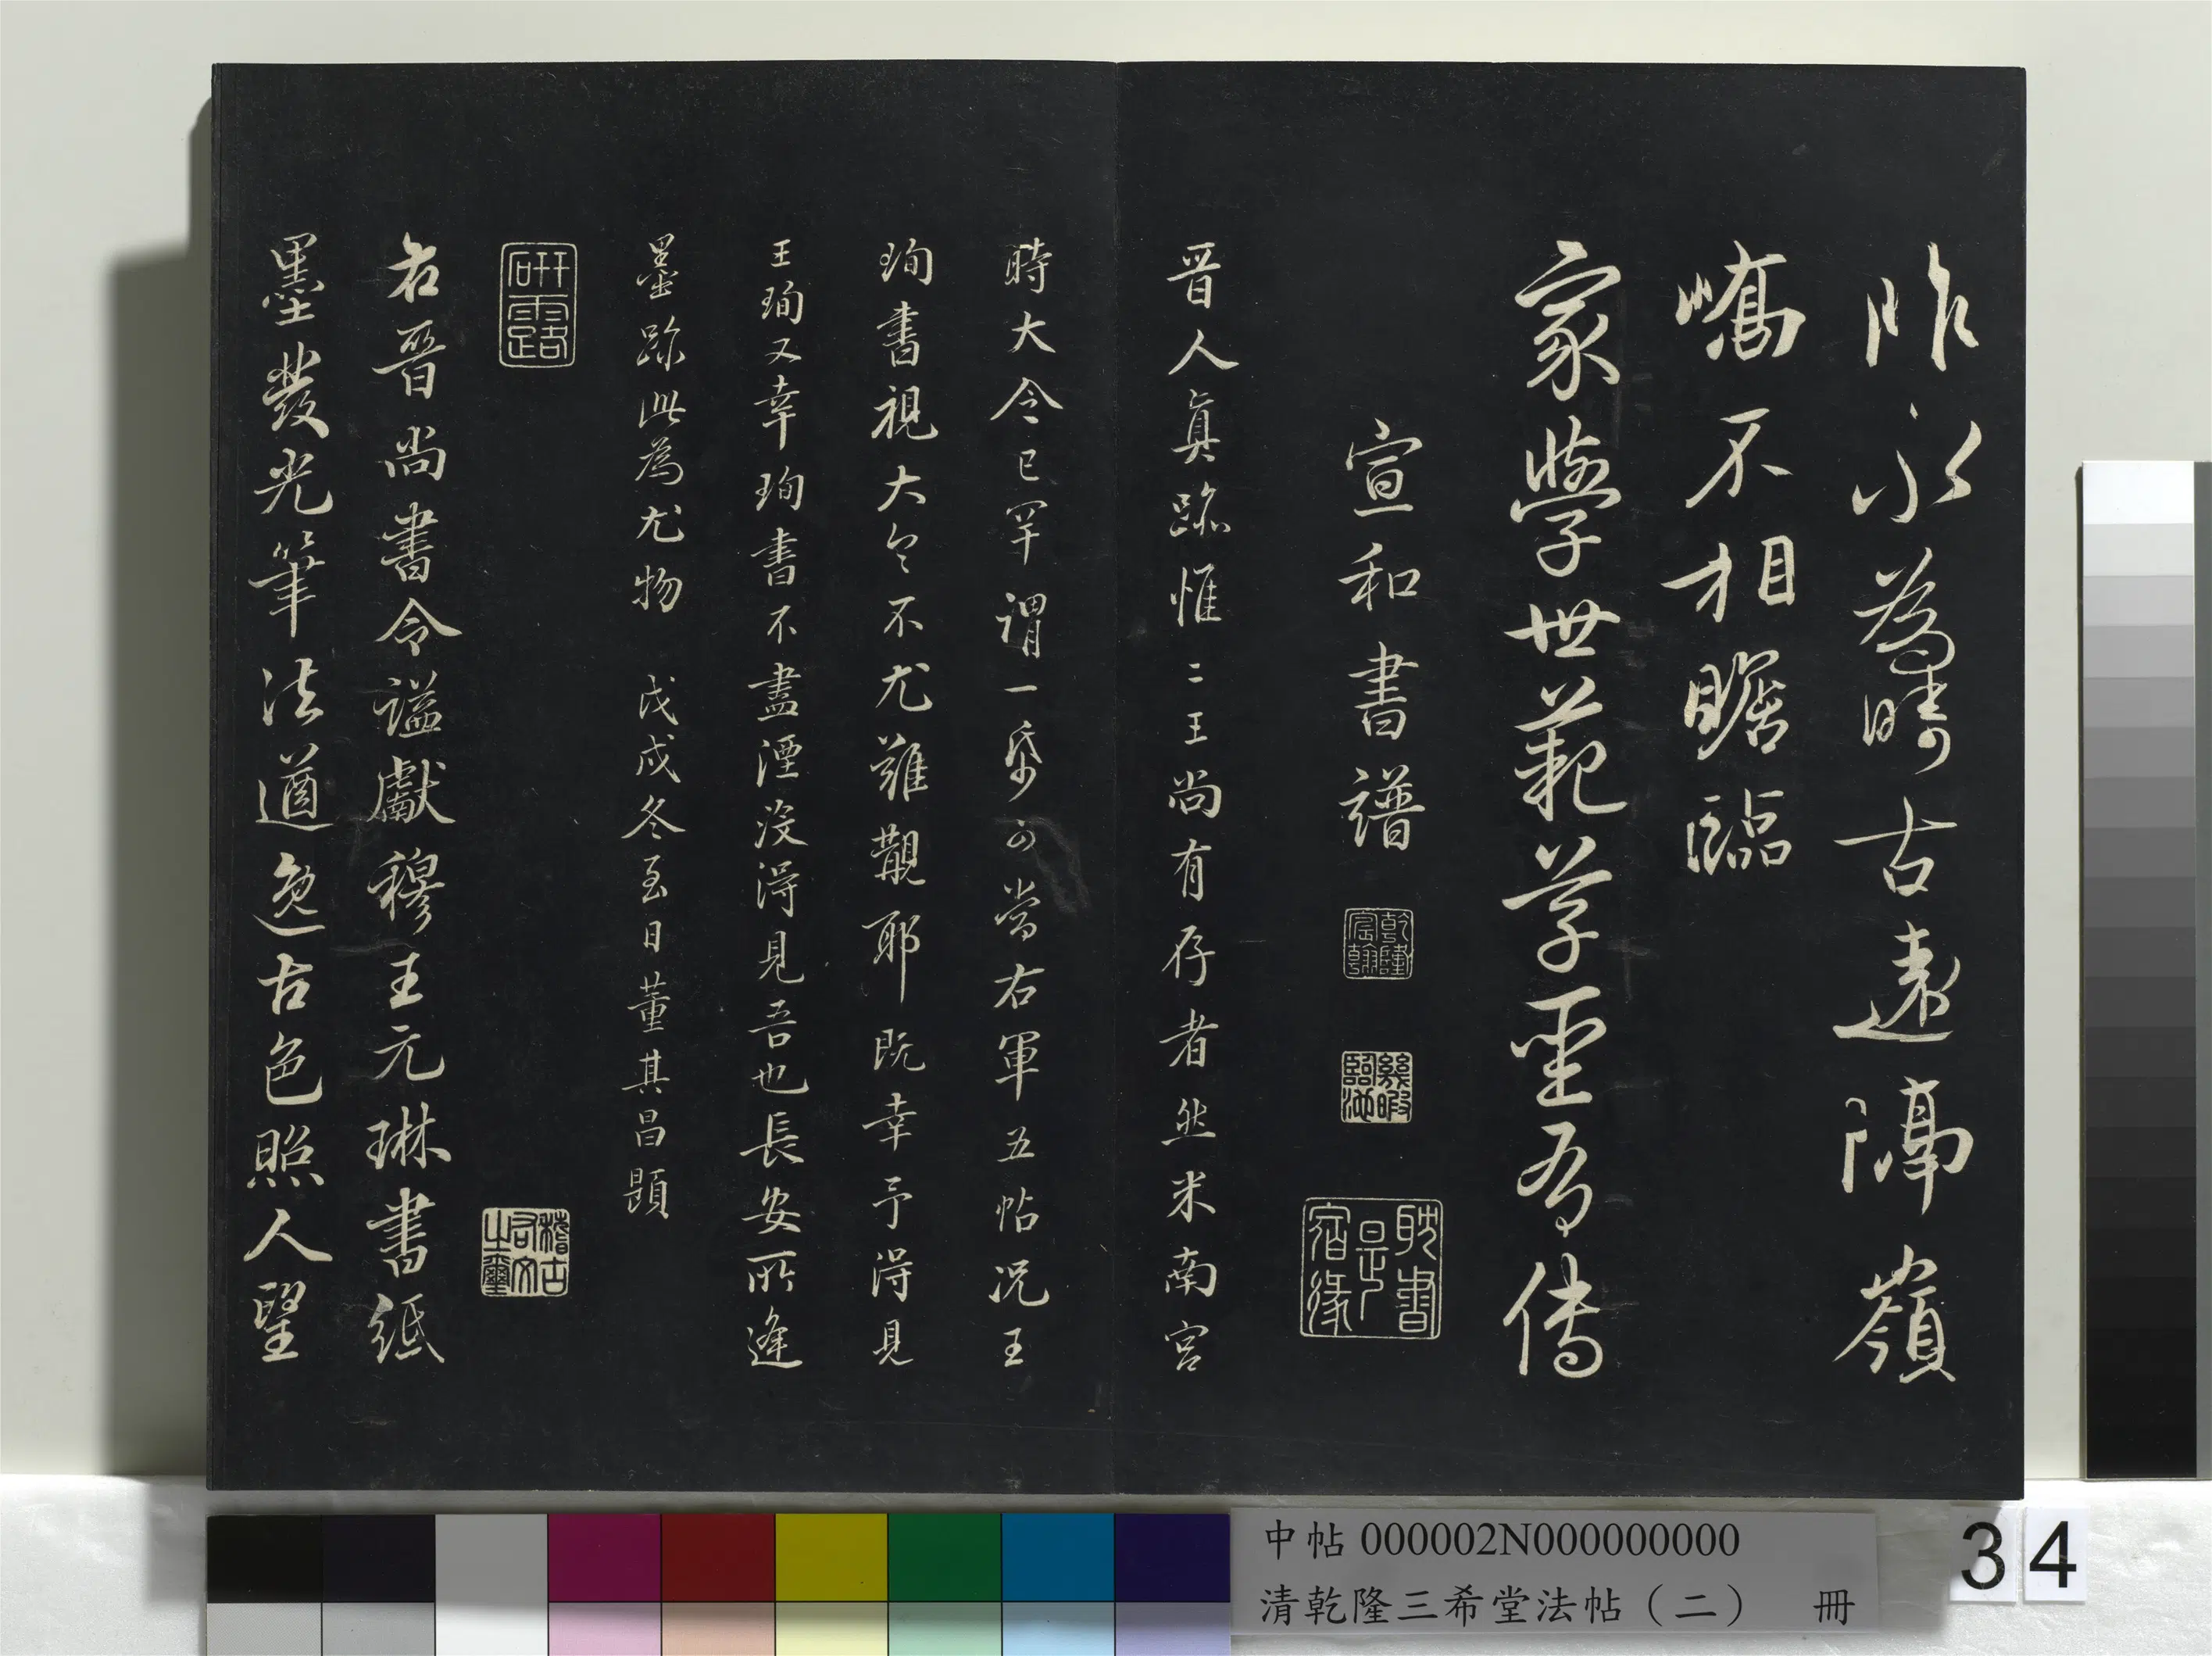 昨永為疇古遠隔嶺
嶠不相瞻臨
家學世範草聖有傳
宣和書譜
乾隆宸翰
幾暇臨池
耽書是宿緣
晉人真跡惟二王尚有存者然米南宮
時大令已罕謂一帋可當右軍五帖況王
珣書視大令不尤難覯耶既幸予得見
王珣又幸珣書不盡湮沒得見吾也長安所逢
墨跡此為尤物 戊戌冬至日董其昌題
研露
稽古右文之璽
右晉尚書令謚獻穆王元琳書紙
墨發光筆法遒逸古色照人望
中帖 000002N000000000
清乾隆三希堂法帖(二) 冊
34